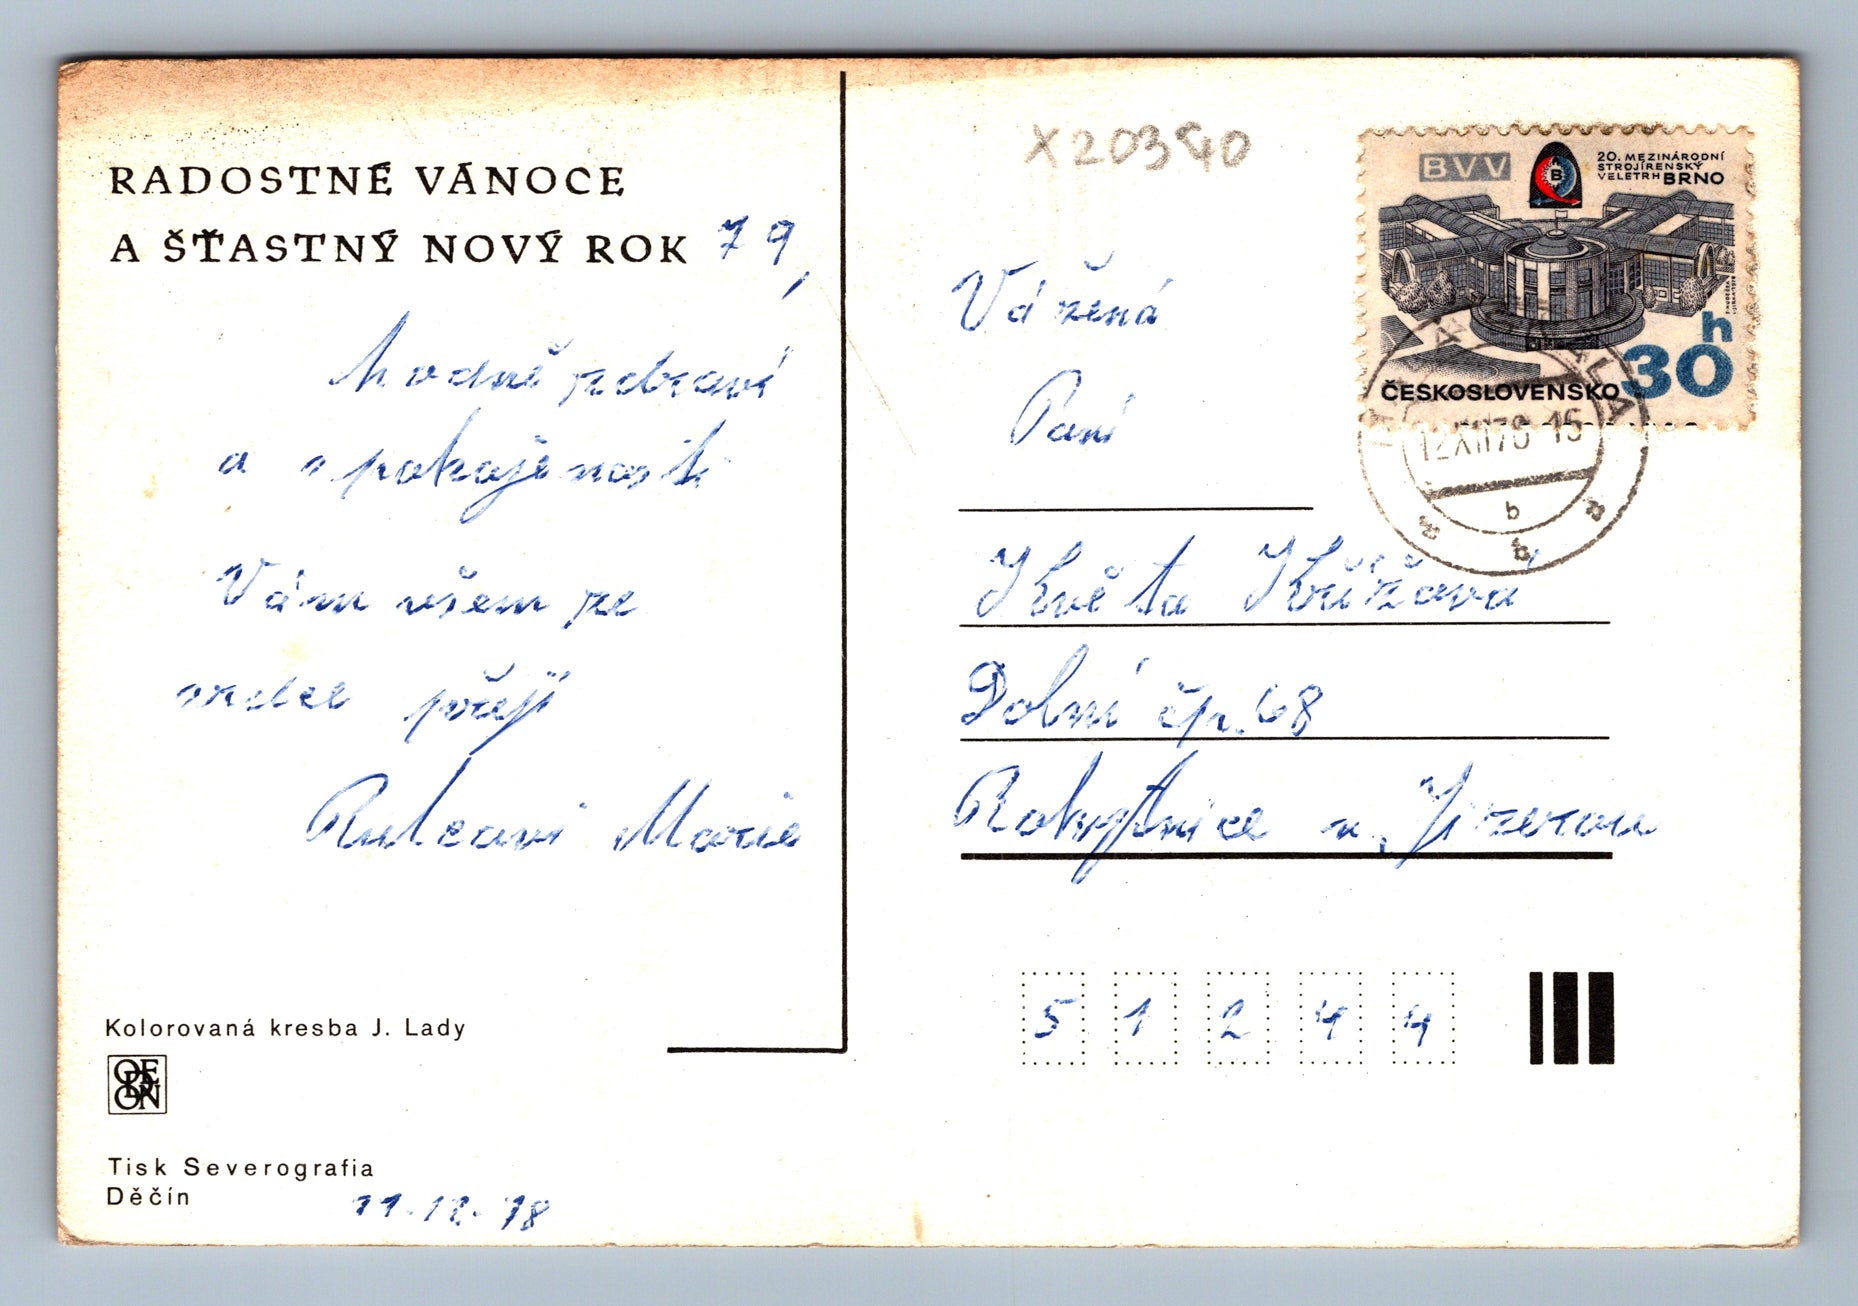 RADOSTNÉ VÁNOCE
A ŠŤASTNÝ NOVÝ ROK 79,
hodně zdraví
a spokojenosti
Vám všem ze
srdce přejí
Marie
Kolorovaná kresba J. Lady
ODEON
Tisk Severografia
Děčín
11.12.78
X20340
BVV
B
20. MEZINÁRODNÍ
STROJÍRENSKÝ
VELETRH BRNO
30h
ČESKOSLOVENSKO
12.XII.78-15
b
Vážená
Paní
Květa Křížová
Dolní čp. 68
Rokytnice n. Jizerou
5 1 2 4 4